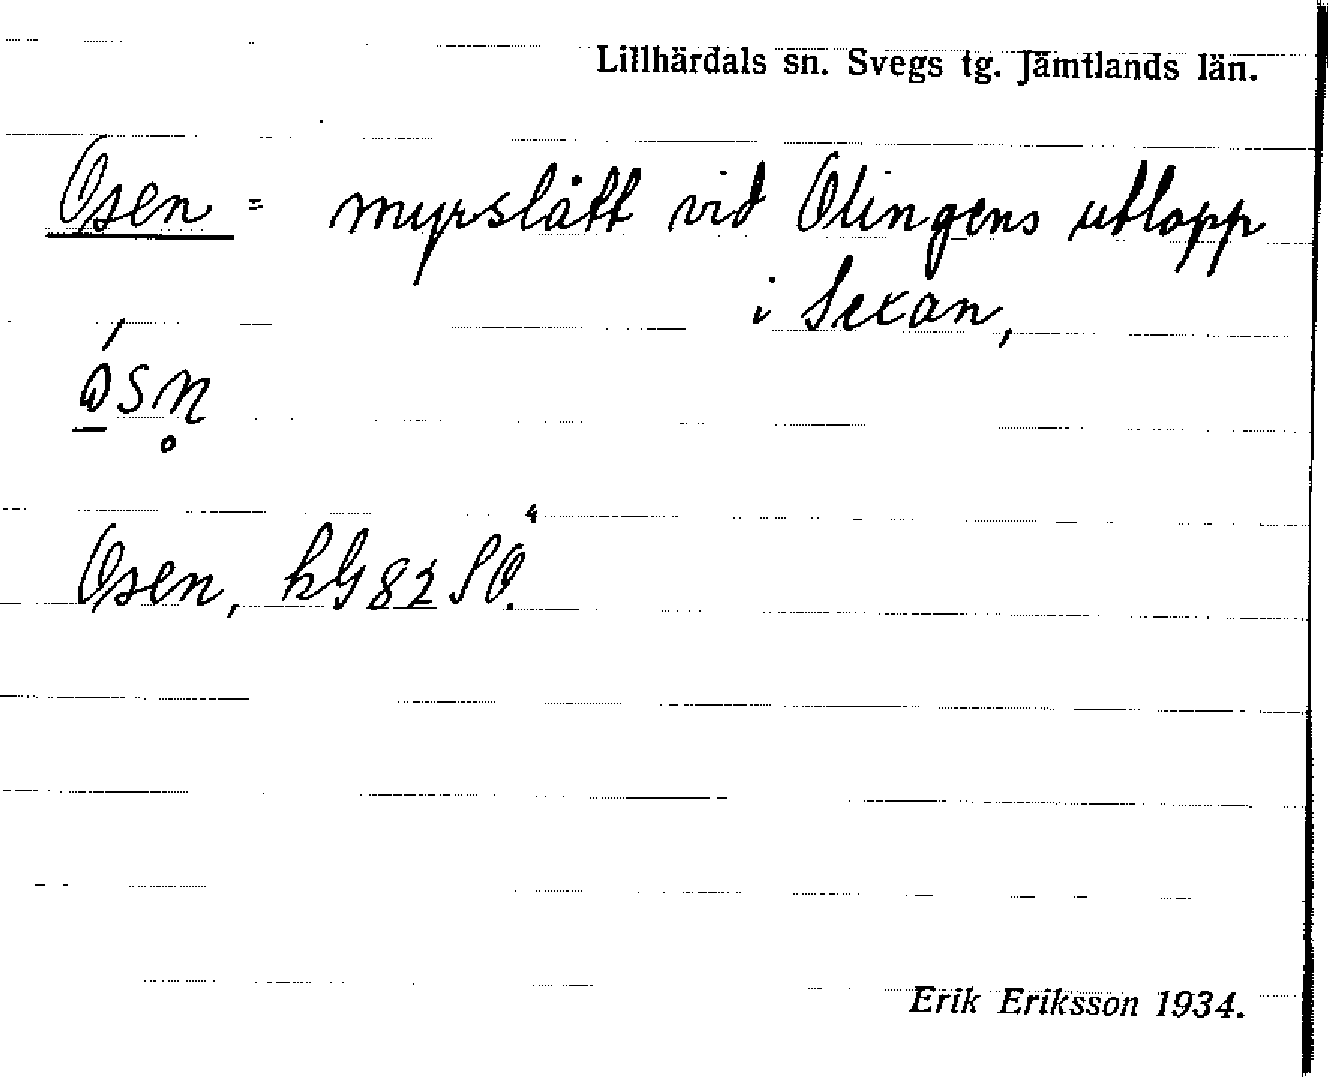 Lillhärdals sn. Svegs tg. Jämtlands län.
Osen = myrslått vid Olingens utlopp
i Sexan,
Osen, hG 82 SO⁴
Erik Eriksson 1934.